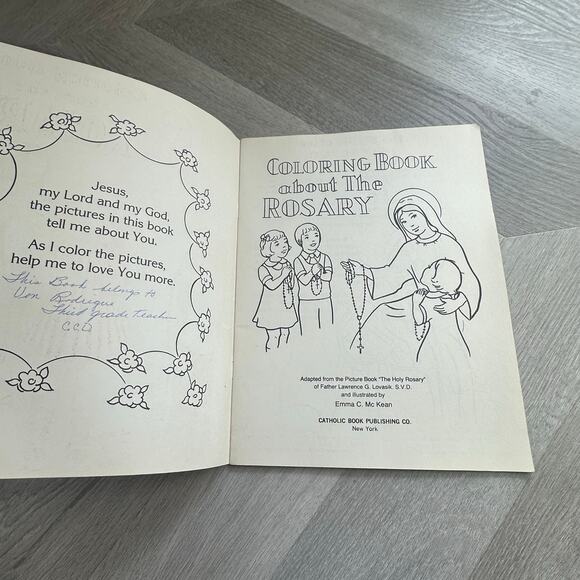 Jesus,
my Lord and my God,
the pictures in this book
tell me about You.
As I color the pictures,
help me to love You more.
This Book belongs to
Von Rodrigue
Third grade Teacher
C.C.D.
COLORING BOOK
about The
ROSARY
Adapted from the Picture Book "The Holy Rosary"
of Father Lawrence G. Lovasik, S.V.D.
and illustrated by
Emma C. Mc Kean
CATHOLIC BOOK PUBLISHING CO.
New York